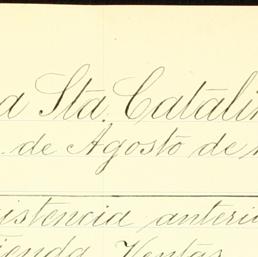 a Sta. Catalin
de Agosto de
istencia anteri
ienda Ventas